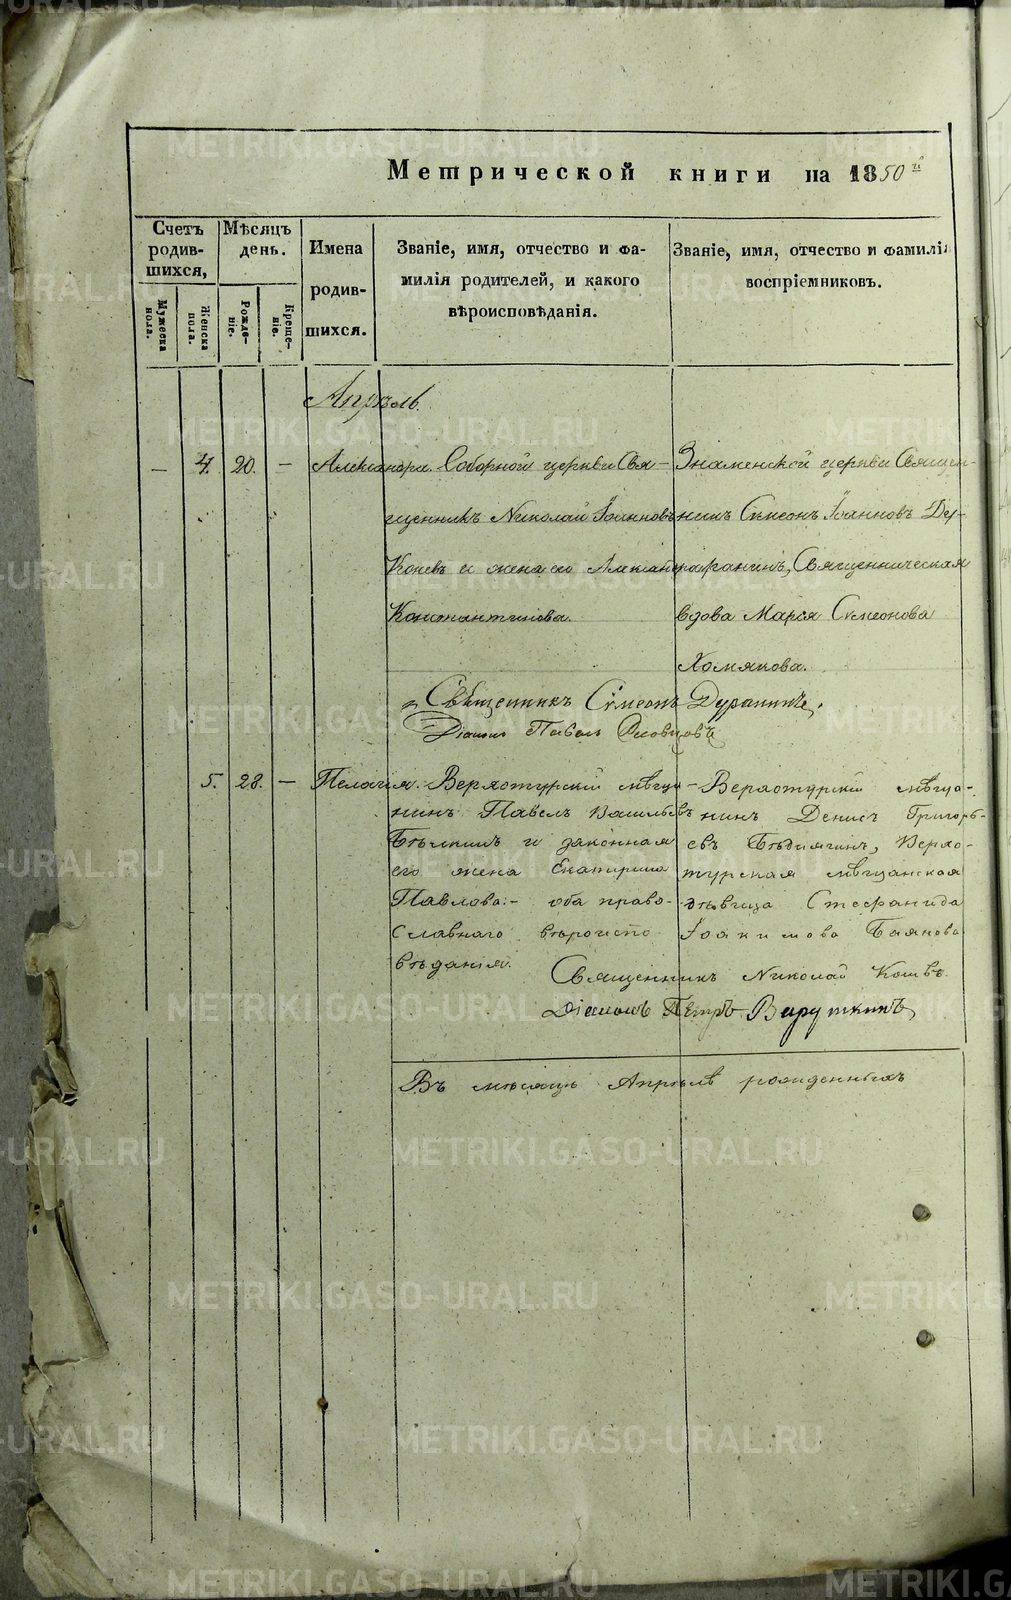 Метрической книги на 1850й
Счетъ родившихся,
Мужеска пола.
Женска пола.
Мѣсяцъ день.
Рожденіе.
Крещеніе.
Имена родившихся.
Званіе, имя, отчество и фамилія родителей, и какого вѣроисповѣданія.
Званіе, имя, отчество и фамилія воспріемниковъ.
Апрѣль.
— 4. 20. — Александра.
Соборной церкви Свя-
щенникъ Николай Іоанновъ
и жена его
Константинова.
Знаменской церкви Священ-
никъ Сѵмеонъ Іоанновъ
Священническая
вдова Марѳа Сѵмеонова
Хомякова.
Священникъ Сѵмеонъ
Діаконъ Павелъ
5. 28. — Пелагія.
Верхотурскій мѣща-
нинъ Павелъ Васильевъ
и законная
его жена Екатерина
Павлова:- оба право-
славнаго вѣроиспо-
вѣданія.
Верхотурскій мѣща-
нинъ Денисъ Григорь-
евъ Верхо-
турская мѣщанская
дѣвица Стефанида
Іоакимова Баянова
Священникъ Николай
Діаконъ Петръ
Въ мѣсяцѣ Апрѣлѣ рожденныхъ
METRIKI.GASO-URAL.RU